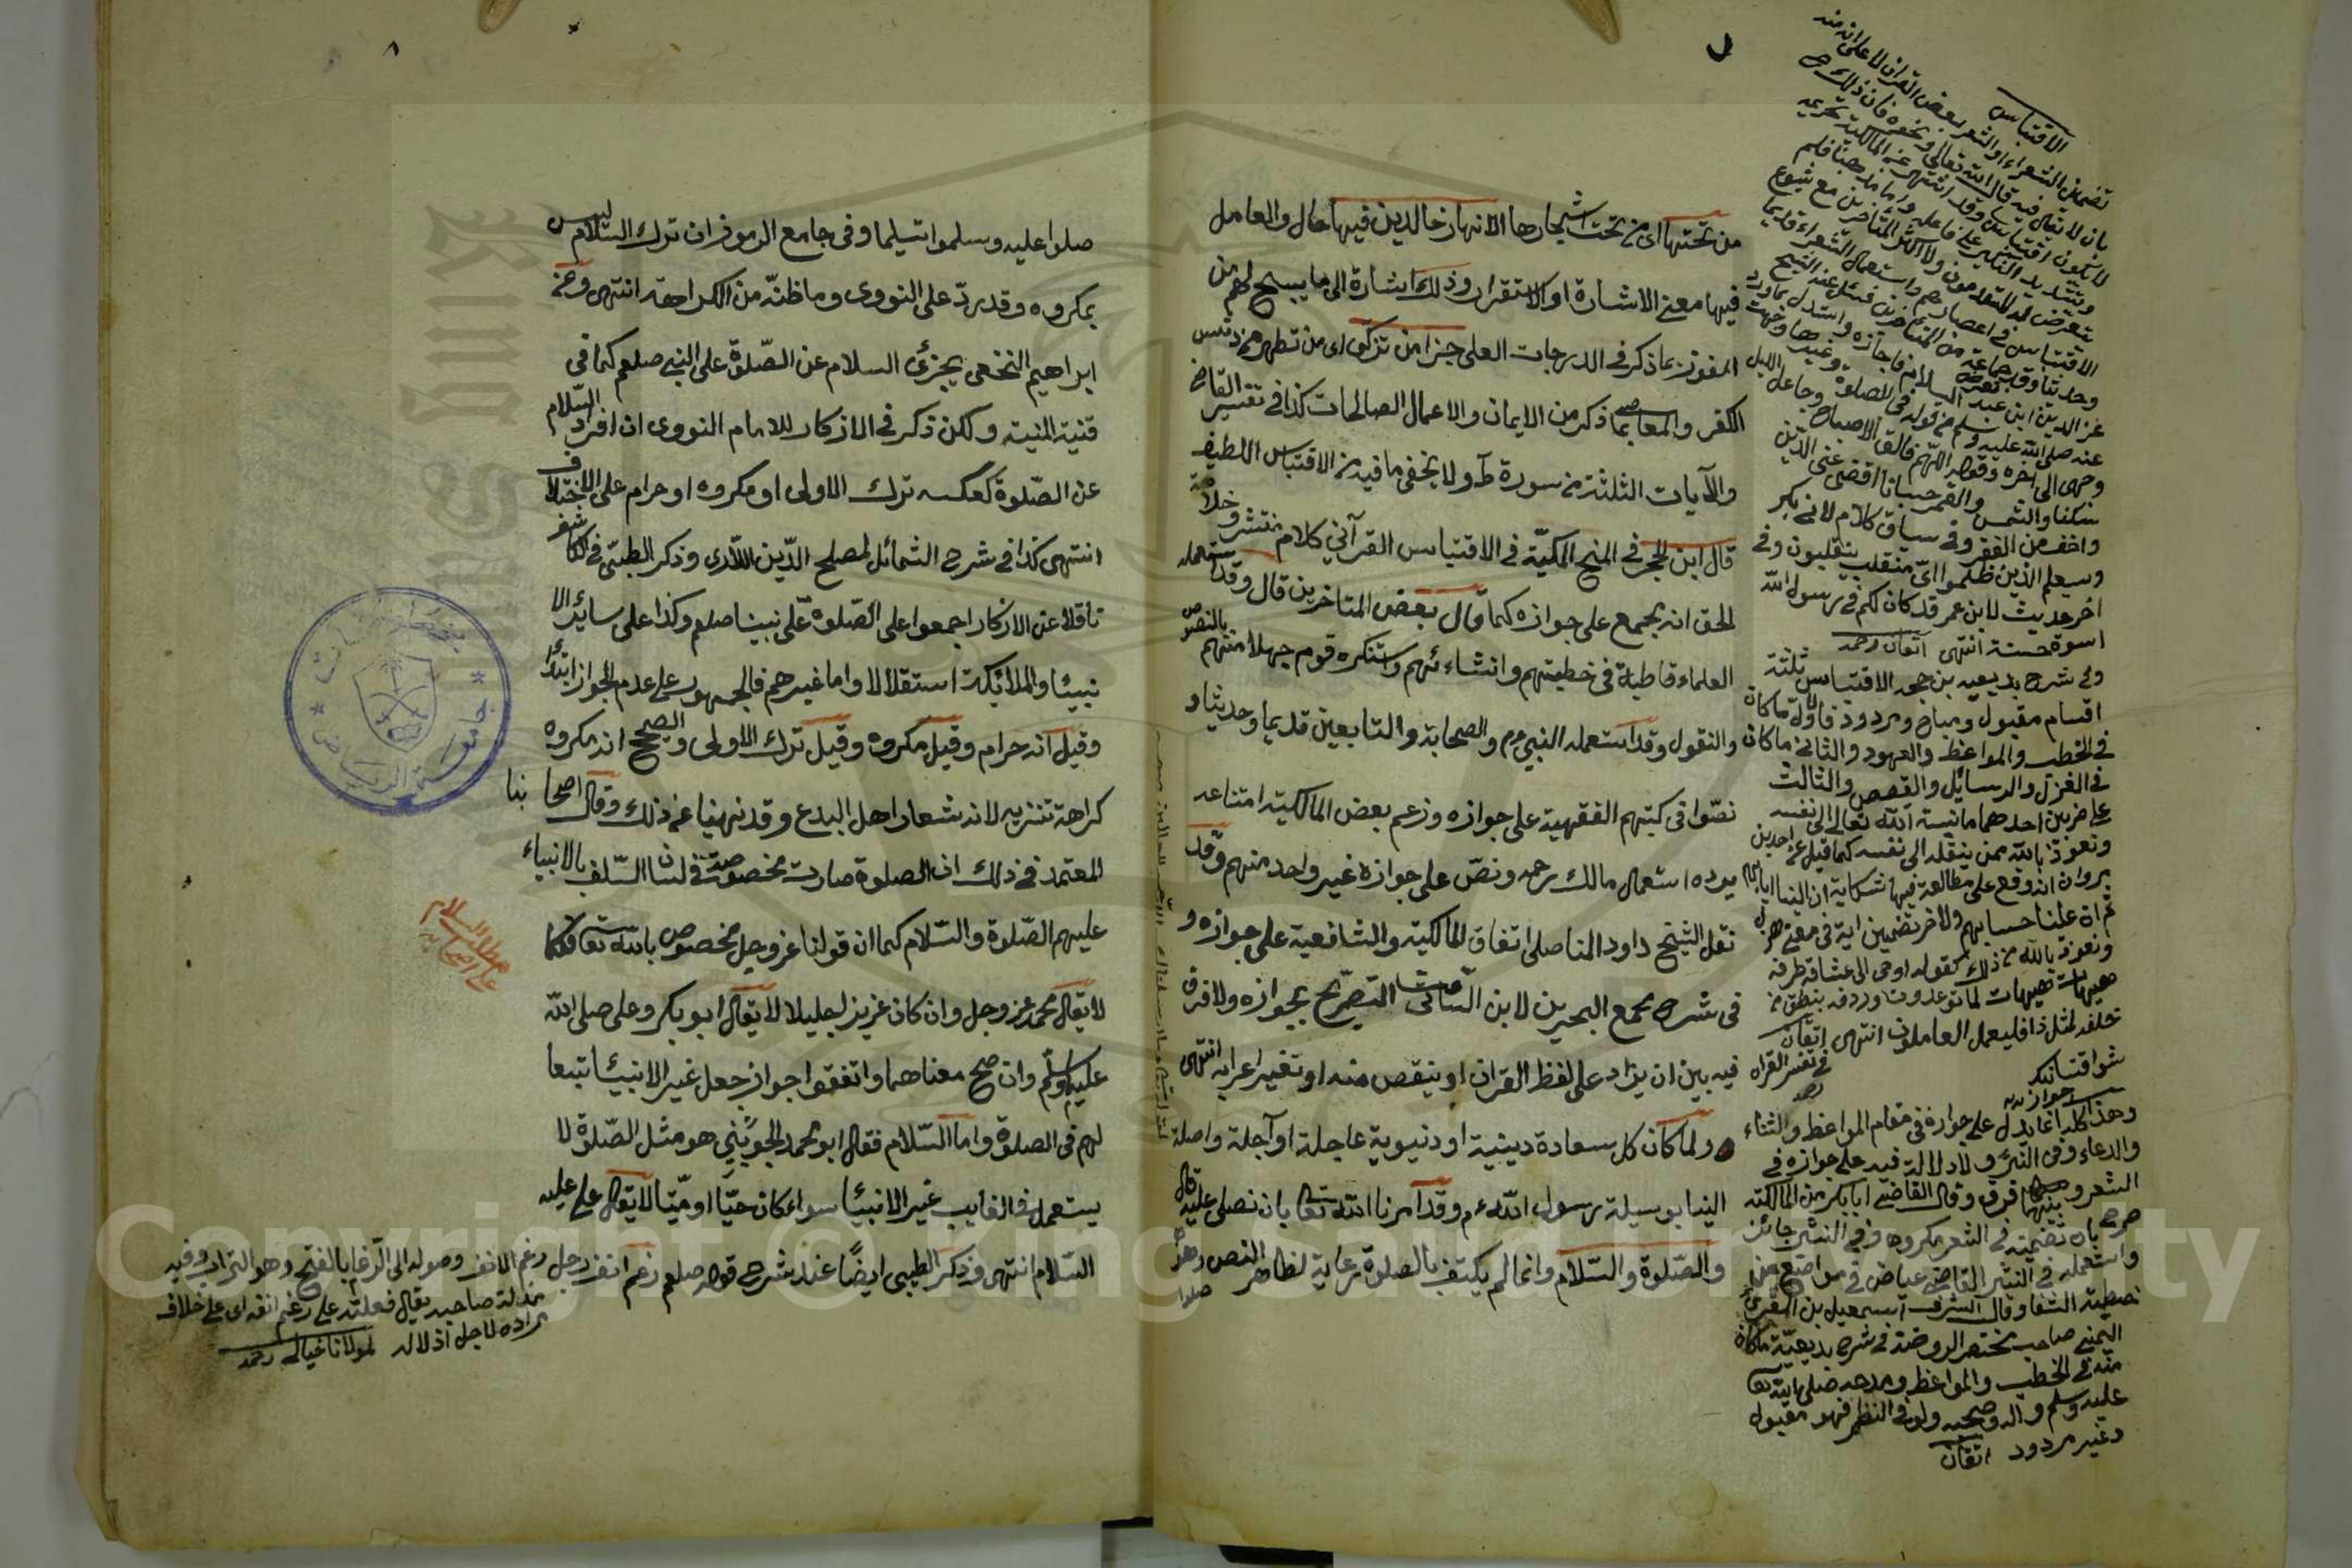 من تحتها اى من تحت اشجارها الانهار خالدين فيها حال والعامل
فيها معنى الاشارة او الاستقرار وذلك اشارة الى ما يسبح لهم من
الفوز بما ذكر فى الدرجات العلى جزا من تزكى اى من تطهر من دنس
الكفر والمعاصى بما ذكر من الايمان والاعمال الصالحات كذا فى تفسير القاضى
والآيات الثلثة من سورة طه ولا يخفى ما فيه من الاقتباس اللطيف
قال ابن الحجر فى المنح المكيّة فى الاقتباس القرآنى كلام منتشر وخلاصة
الحق انه مجمع على جوازه كما قال بعض المتاخرين قال وقد استعمله
العلماء قاطبة فى خطبتهم وانشاءئهم واستنكره قوم جهلا منهم بالنصوص
والنقول وقد استعمله النبى م والصحابة والتابعين قديما وحديثا و
نصّوا فى كتبهم الفقهية على جوازه وزعم بعض المالكية امتناعه
يرده استعمال مالك رحمه ونصّ على جوازه غير واحد منهم وقد
نقل الشيخ داود المناصلى اتفاق المالكية والشافعية على جوازه و
فى شرح مجمع البحرين لابن الساعاتى التصريح بجوازه ولا فرق
فيه بين ان يزاد على لفظ القران او ينقص منه او تغير اعرابه انتهى
ولما كان كل سعادة دينية او دنيوية عاجلة او آجلة واصلة
الينا بوسيلة رسول اللّه م وقد امرنا اللّه تعا بان نصلى عليه قال
والصّلوة والسّلام وانما لم يكتف بالصلوة رعاية لظاهر النص وهو
صلوا
الاقتباس
تضمين الشعراء او الشعر بعض القران لا على انه منه
بان لا يقال فيه قال اللّه تعالى ونحوه فان ذلك ح
لا يكون اقتباسا وقد اشتهر عن المالكية تحريمه
وتشديد النكير على فاعله واما مذهبنا فلم
يتعرض له المتقدمون ولا اكثر المتاخرين مع شيوع
الاقتباس فى اعصارهم واستعمال الشعراء قديما
وحديثا وقد تعرض جماعة من المتاخرين فسئل عنه الشيخ
عز الدين ابن عبد السلام فاجازه واستدل بما ورد
عنه صلى اللّه عليه وسلم من قوله فى الصلوة وغيرها وجهت
وجهى الى اخره وقوله اللّهم فالق الاصباح وجاعل الليل
سكنا والشمس والقمر حسبانا اقض عنى الدين
واغننى من الفقر وفى سياق كلام لابى بكر
وسيعلم الذين ظلموا اىّ منقلب ينقلبون وفى
اخر حديث لابن عمر قد كان لكم فى رسول اللّه
اسوة حسنة انتهى اتقان رحمه
وفى شرح بديعيه بن حجه الاقتباس ثلثة
اقسام مقبول ومباح ومردود فالاول ما كان
فى الخطب والمواعظ والعهود والثانى ما كان
فى الغزل والرسائل والقصص والثالث
على ضربين احدهما ما نسبه اللّه تعالى الى نفسه
ونعوذ باللّه ممن ينقله الى نفسه كما قيل عن احد بنى
مروان انه وقع على مطالعة فيها شكاية ان الينا ايابهم
ثم ان علينا حسابهم والاخر تضمين اية فى معنى هزل
ونعوذ باللّه من ذلك كقوله اوحى الى عشاقه طرفه
هيهات هيهات لما توعدون وردفه ينطق من
خلفه لمثل ذا فليعمل العاملون انتهى اتقان
فى تفسير القران
وهذا كله انما يدل على جوازه فى مقام المواعظ والثناء
والدعاء وفى النثر ولا دلالة فيه على جوازه فى
الشعر وبينهما فرق وقال القاضى ابا بكر من المالكية
صرح بان تضمينه فى الشعر مكروه وفى النثر جائز
واستعمله فى النثر القاضى عياض فى مواضع من
خطبة الشفا وقال الشرف اسمعيل بن المقرى
اليمنى صاحب مختصر الروضة فى شرح بديعيّة ما كان
منه فى الخطب والمواعظ ومدحه صلى اللّه تعا
عليه وسلم واله وصحبه ولو فى النظم فهو مقبول
وغيره مردود اتقان
صلوا عليه وسلموا تسليما وفى جامع الرموز ان ترك السّلام ليس
بمكروه وقد ردّ على النووى وما ظنّه من الكراهة انتهى وعن
ابراهيم النخعى يجزئ السلام عن الصّلوة على النبى صلعم كما فى
قنية المنية ولكن ذكر فى الاذكار للامام النووى ان افراد السّلام
عن الصّلوة كعكسه ترك الاولى او مكروه او حرام على الاختلاف
انتهى كذا فى شرح الشمائل لمصلح الدّين اللّارى وذكر الطيبى فى الكاشف
ناقلا عن الاذكار اجمعوا على الصّلوة على نبينا صلعم وكذا على سائر الا
نبيئا والملائكة استقلالا واما غيرهم فالجمهور على عدم الجواز ابتداً
وقيل انه حرام وقيل مكروه وقيل ترك الاولى والصحيح انه مكروه
كراهة تنزيه لانه شعار اهل البدع وقد نهينا عن ذلك وقال اصحابنا
المعتمد فى ذلك ان الصلوة صارت مخصوصة فى لسان السّلف بالانبياء
عليهم الصّلوة والسّلام كما ان قولنا عز وجل مخصوص باللّه تعا فكما
لا يقال محمد عز وجل وان كان عزيزا جليلا لا يقال ابو بكر وعلى صلى اللّه
عليه وسلّم وان صح معناهما واتفقوا جواز جعل غير الانبيئا تبعا
لهم فى الصلوة واما السّلام فقال ابو محمد الجوينى هو مثل الصّلوة لا
يستعمل فى الغايب غير الانبيئا سواء كان حيّا او ميّتا لا يقال على عليه
السّلام انتهى وذكر الطيبى ايضًا عند شرح قوله صلعم رغم انف رجل
رغم الانف وصوله الى الرّغام بالفتح وهو التراب وفيه
مذلة صاحبه يقال فعلته على رغم انفه اى على خلاف
مراده لاجل اذلاله لمولانا خيالى رحمه
جامعة الرياض
Copyright © King Saud University